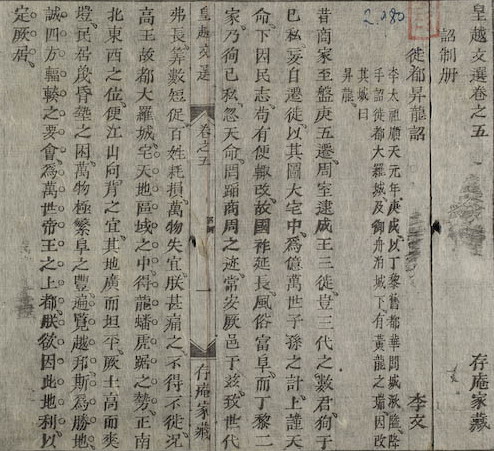 皇越文選卷之五 存庵家藏
詔制册
徙都昇龍詔 李文
李太祖順天元年庚戌以丁黎舊都華閭城湫隘降
手詔徙都大羅城及御舟泊城下有黃龍之瑞因改
其城曰
昇龍
昔商家至盤庚五遷周室逮成王三徙豈三代之數君徇于
已私妄自遷徙以其圖大宅中爲億萬世子孫之計上謹天
命下因民志苟有便輒改故國祚延長風俗富阜而丁黎二
家乃徇已私忽天命罔蹈商周之迹常安厥邑于兹致世代
皇越文選 卷之五 一 存庵家藏
弗長筭數短促百姓耗損萬物失宜朕甚痛之不得不徙况
高王故都大羅城宅天地區域之中得龍蟠虎踞之勢正南
北東西之位便江山向背之宜其地廣而坦平厥土高而爽
塏民居蔑昏墊之困萬物極繁阜之豐遍覽越邦斯爲勝地
誠四方輻輳之要會爲萬世帝王之上都朕欲因此地利以
定厥居
2280